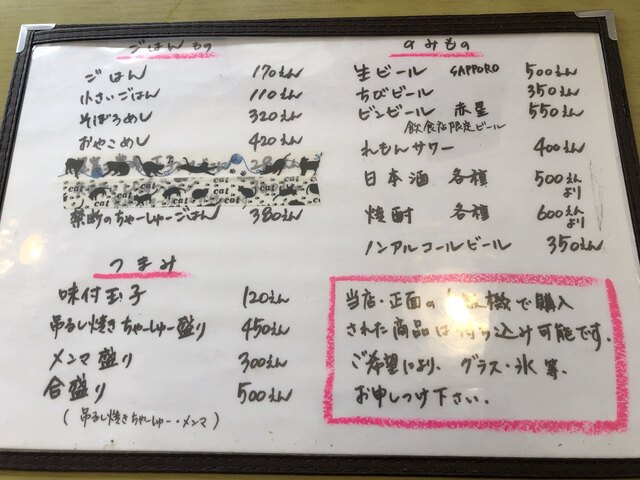 ごはんもの
ごはん 170えん
小さいごはん 110えん
そぼろめし 320えん
おやこめし 420えん
cat cat cat cat cat
禁断のちゃーしゅーごはん 380えん
つまみ
味付玉子 120えん
吊るし焼きちゃーしゅー盛り 450えん
メンマ盛り 300えん
合盛り 500えん
(吊るし焼きちゃーしゅー・メンマ)
のみもの
生ビール SAPPORO 500えん
ちびビール 350えん
ビンビール 赤星 550えん
飲食店限定ビール
れもんサワー 400えん
日本酒 各種 500えんより
焼酎 各種 600えんより
ノンアルコールビール 350えん
当店・正面の 機で購入
された商品は持ち込み可能です.
ご希望により、グラス・氷 等、
お申しつけ下さい.